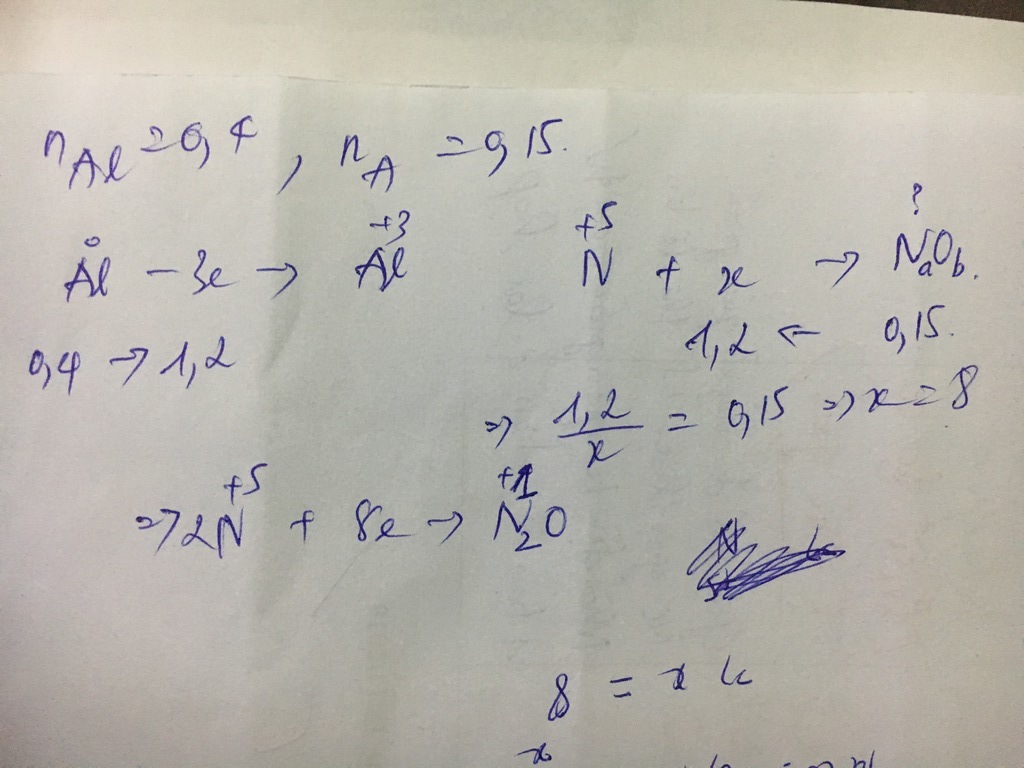 nAl = 0,4 , nA = 0,15.
0 +3 +5 ?
Al – 3e → Al N + xe → NaOb.
0,4 → 1,2 1,2 ← 0,15.
⇒ 1,2/x = 0,15 ⇒ x = 8
+5 +1
⇒ 2N + 8e → N2O
8 = x
x